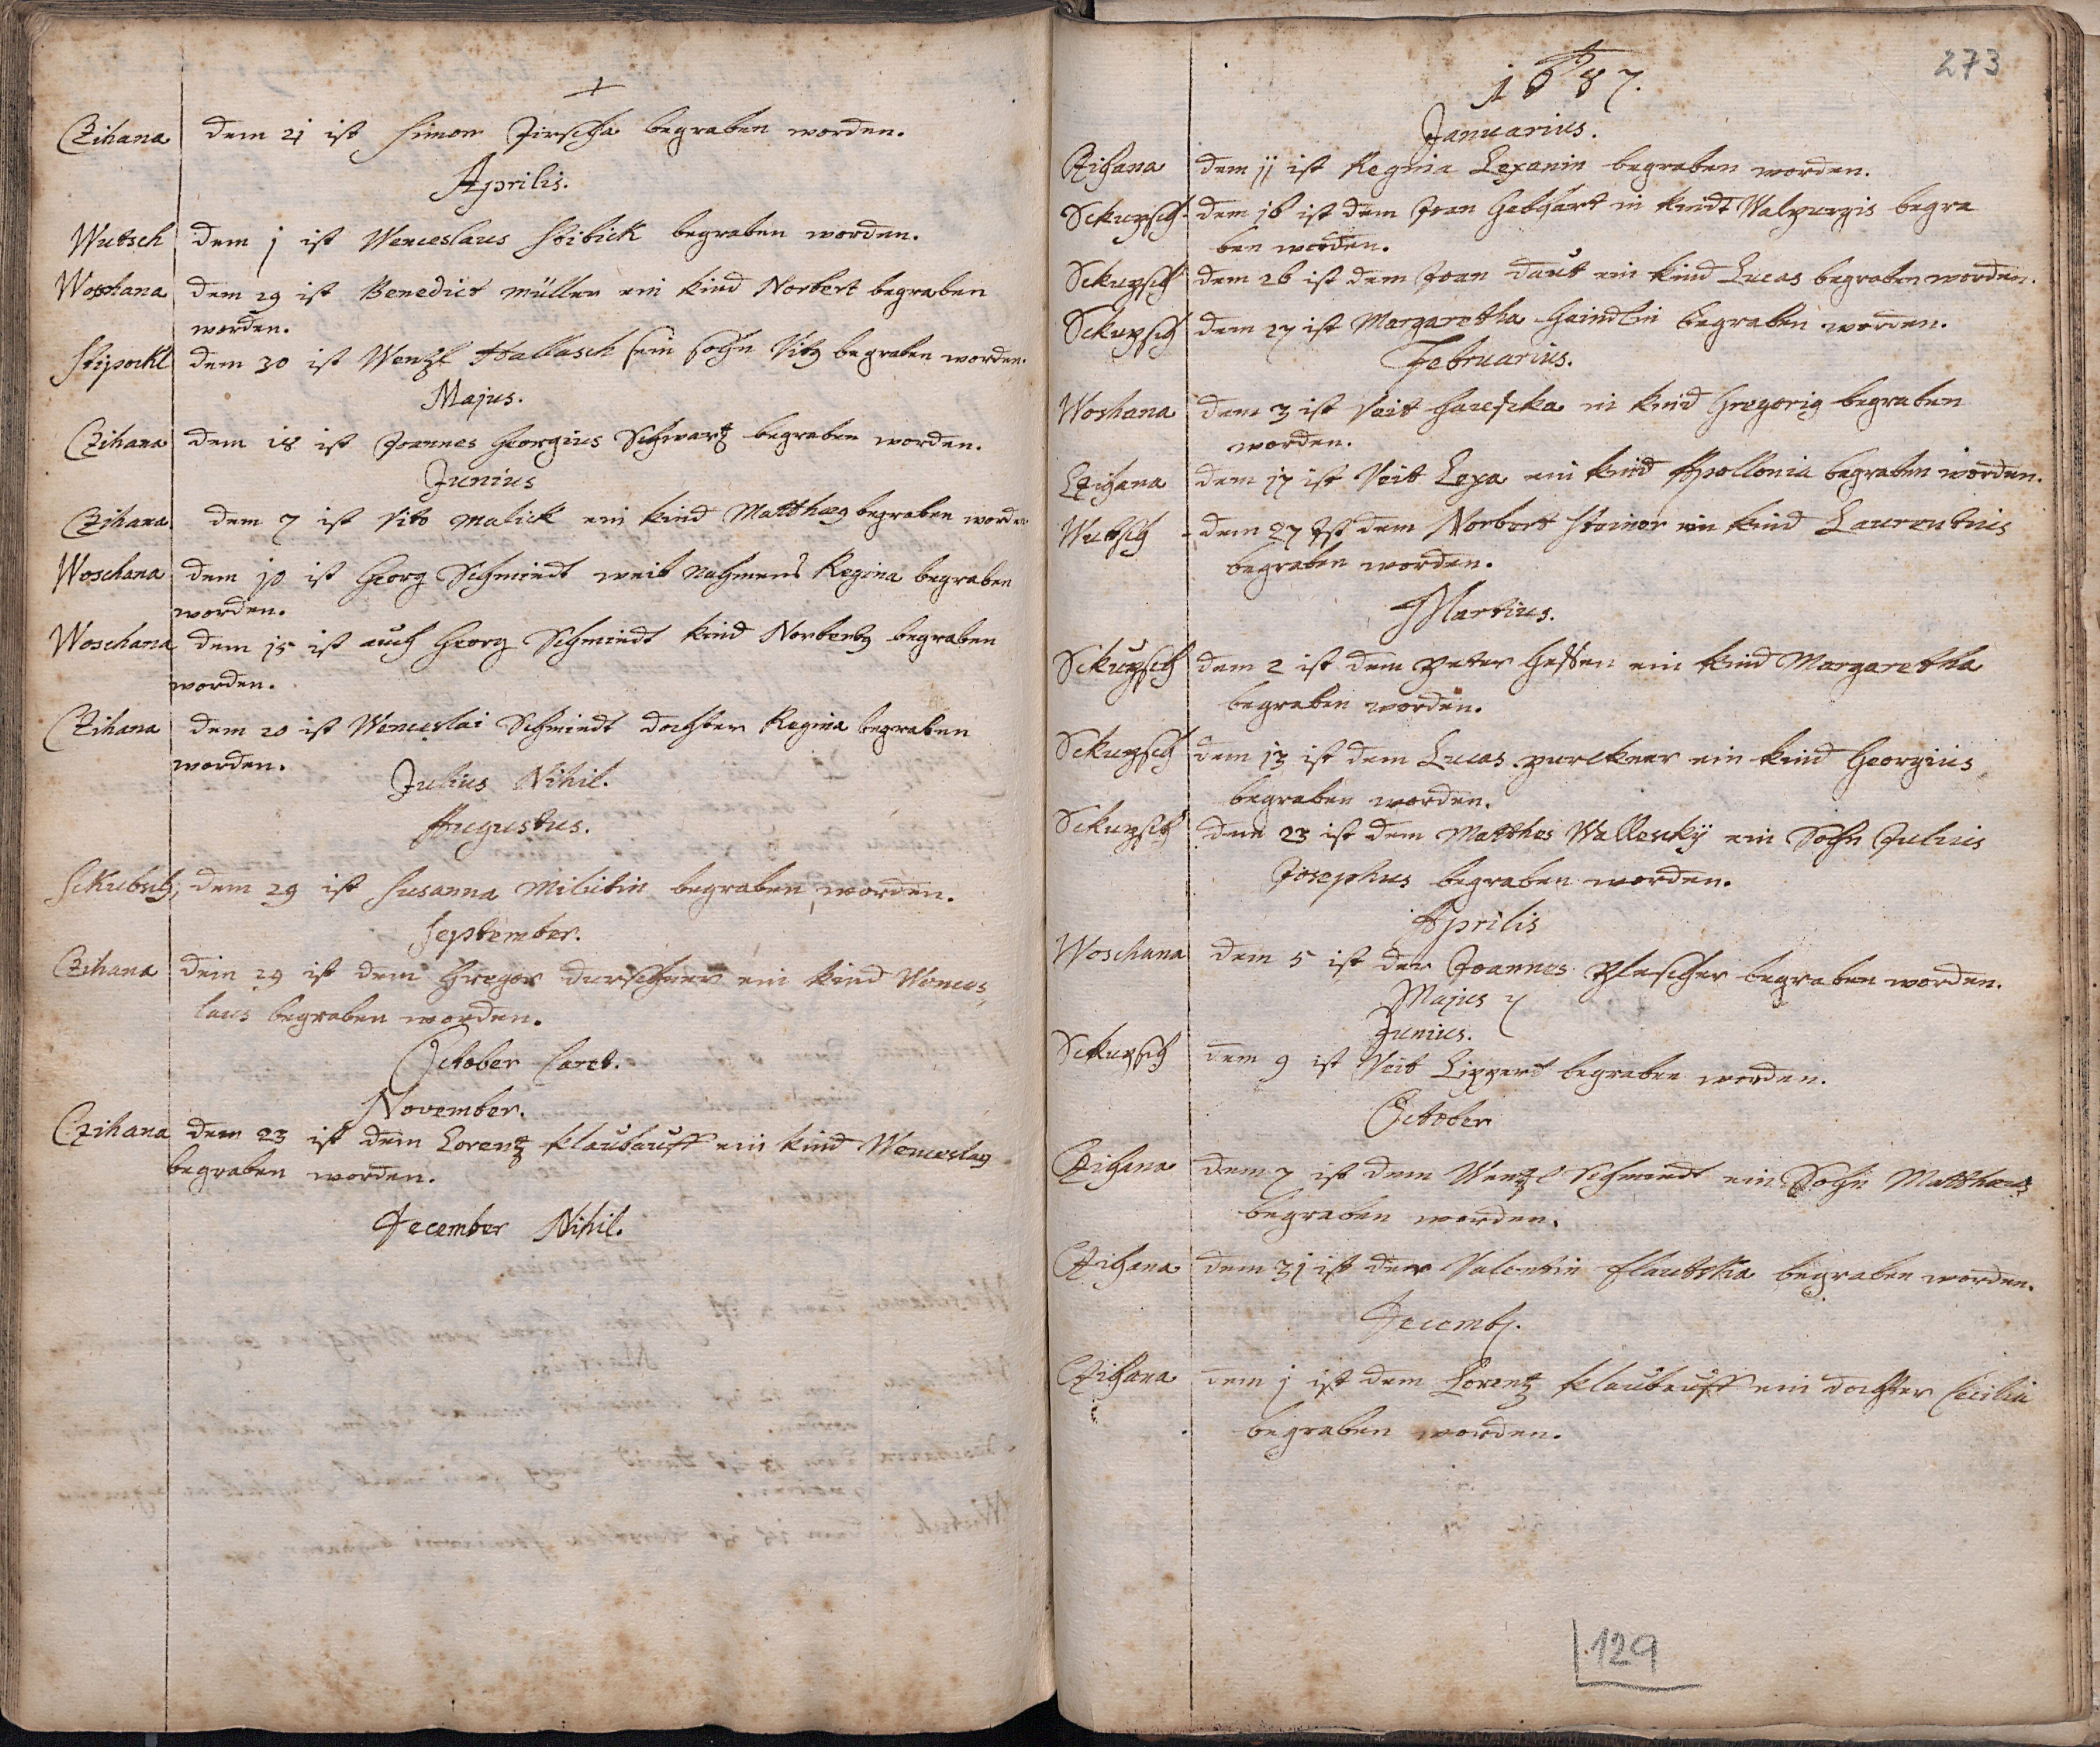 Czihana dem 21 ist Simon Jirscha begraben worden.
Aprilis.
Wutsch dem 1 ist Wenceslaus Stibick begraben worden.
Woschana dem 29 ist Benedict Müller ein kind Norbert begraben
worden.
dem 30 ist Wentzl Hallasch sein sohn Vitg begraben worden.
Majus.
Czihana dem 18 ist Joannes Georgius Schwartz begraben worden.
Junius
Czihana dem 7 ist Vito Malick ein kind Matthæg begraben worden
Woschana dem 10 ist Georg Schmiedt weib nahmens Regina begraben
worden.
Woschana dem 15 ist auch Georg Schmiedt kind Norbertg begraben
worden.
Czihana dem 20 ist Wenceslai Schmiedt dochter Regina begraben
worden.
Julius Nihil.
Augustus.
dem 29 ist Susanna begraben worden.
September.
Czihana dem 29 ist dem Gregor ein kind Wences
laus begraben worden.
October Caret.
November.
Czihana dem 23 ist dem Lorentz klaubauff ein kind Wenceslag
begraben worden.
December Nihil.
273
1687.
Januarius.
Czihana dem 11 ist Regina Lexanin begraben worden.
Skupsch dem 16 ist dem Joan Gebhart in kindt Walpurgis begra
ben worden.
Skupsch dem 26 ist dem Joan daut ein kind Lucas begraben worden.
Skupsch dem 27 ist Margaretha Haindlin begraben worden.
Februarius.
Woshana dem 3 ist Veit in kind Gregorig begraben
worden.
Czihana dem 17 ist Veit Lexa ein kind Apollonia begraben worden.
Wutsch dem 27 ist dem Norbert Steiner ein kind Laurentius
begraben worden.
Martius.
Skupsch dem 2 ist dem Peter Hessen ein kind Margaretha
begraben worden.
Skupsch dem 13 ist dem Lucas purckner ein kind Georgius
begraben worden.
Skupsch den 23 ist dem Matthes Wallescky ein Sohn Julius
Josephus begraben worden.
Aprilis
Woschana dem 5 ist der Joannes Plescher begraben worden.
Majus
Junius.
Skupsch dem 9 ist Veit Lippert begraben worden.
October
Czihana dem 7 ist dem Wentzl Schmiedt ein Sohn Matthæus
begraben worden.
Czihana dem 31 ist der Valentin begraben worden.
Decemb.
Czihana dem 1 ist dem Lorentz klaubauff ein dochter Cecilia
begraben worden.
129